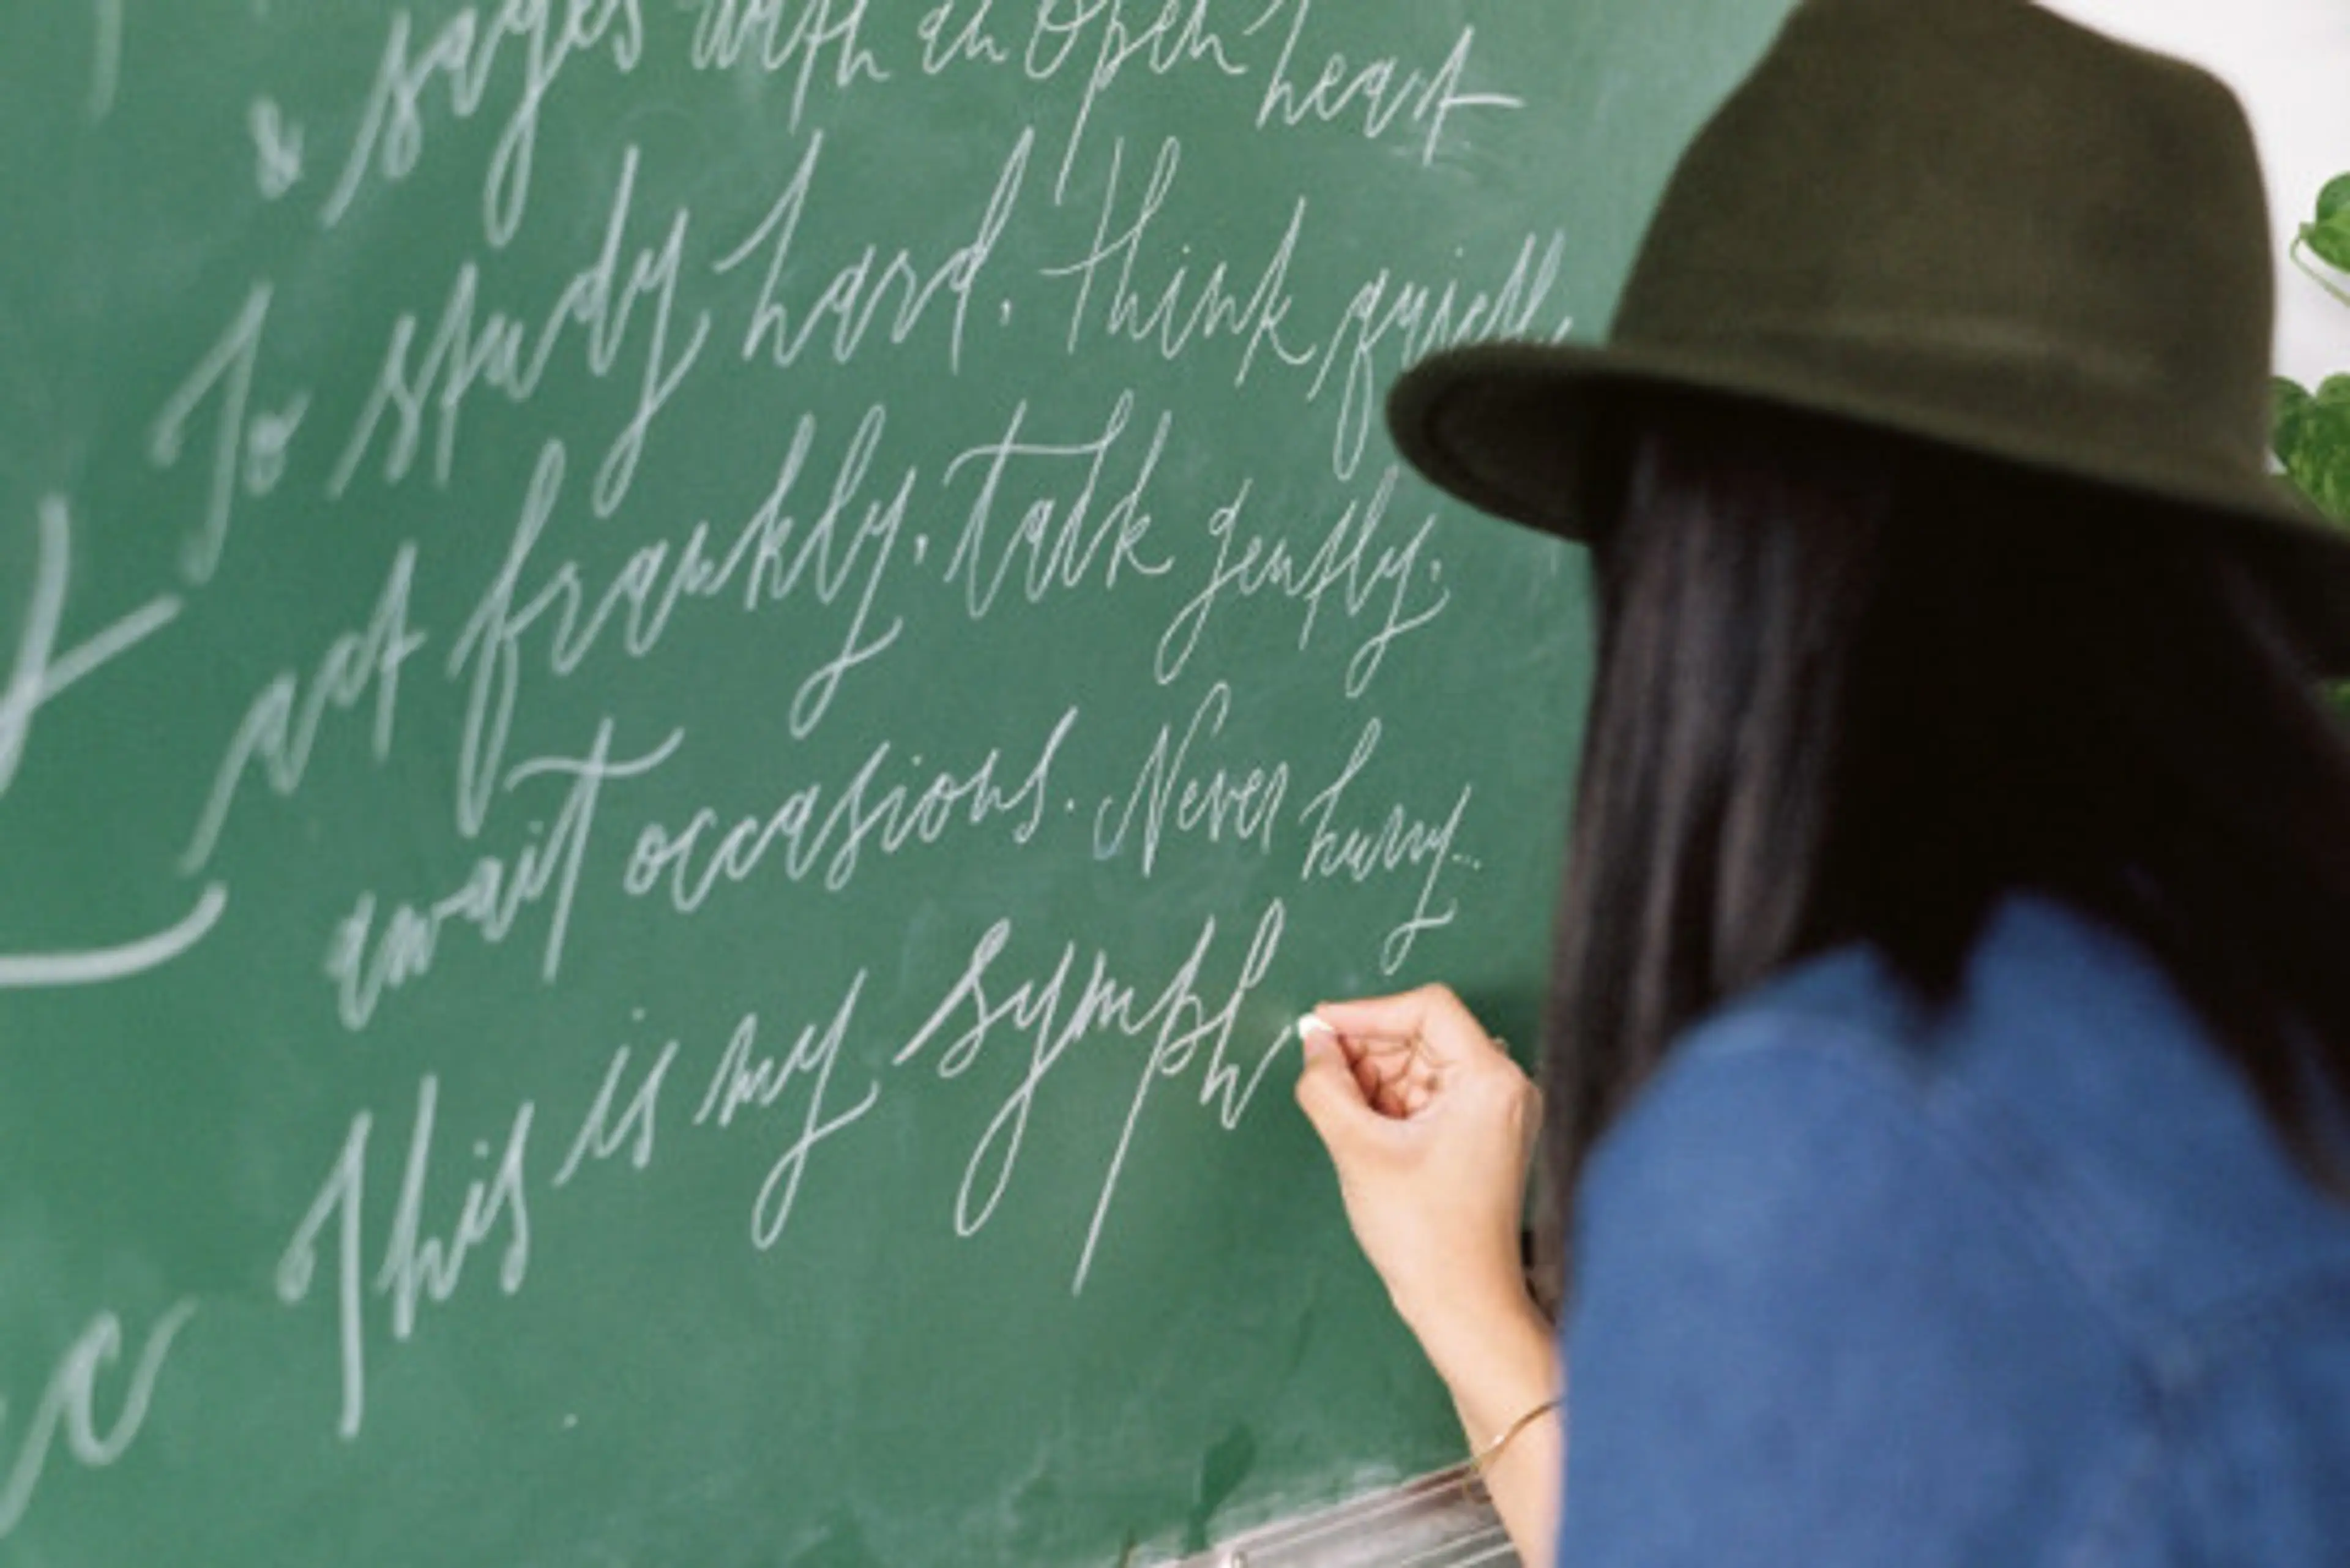 & sages with an open heart
To study hard, think
act frankly, talk gently,
await occasions. Never hurry...
This is my symph